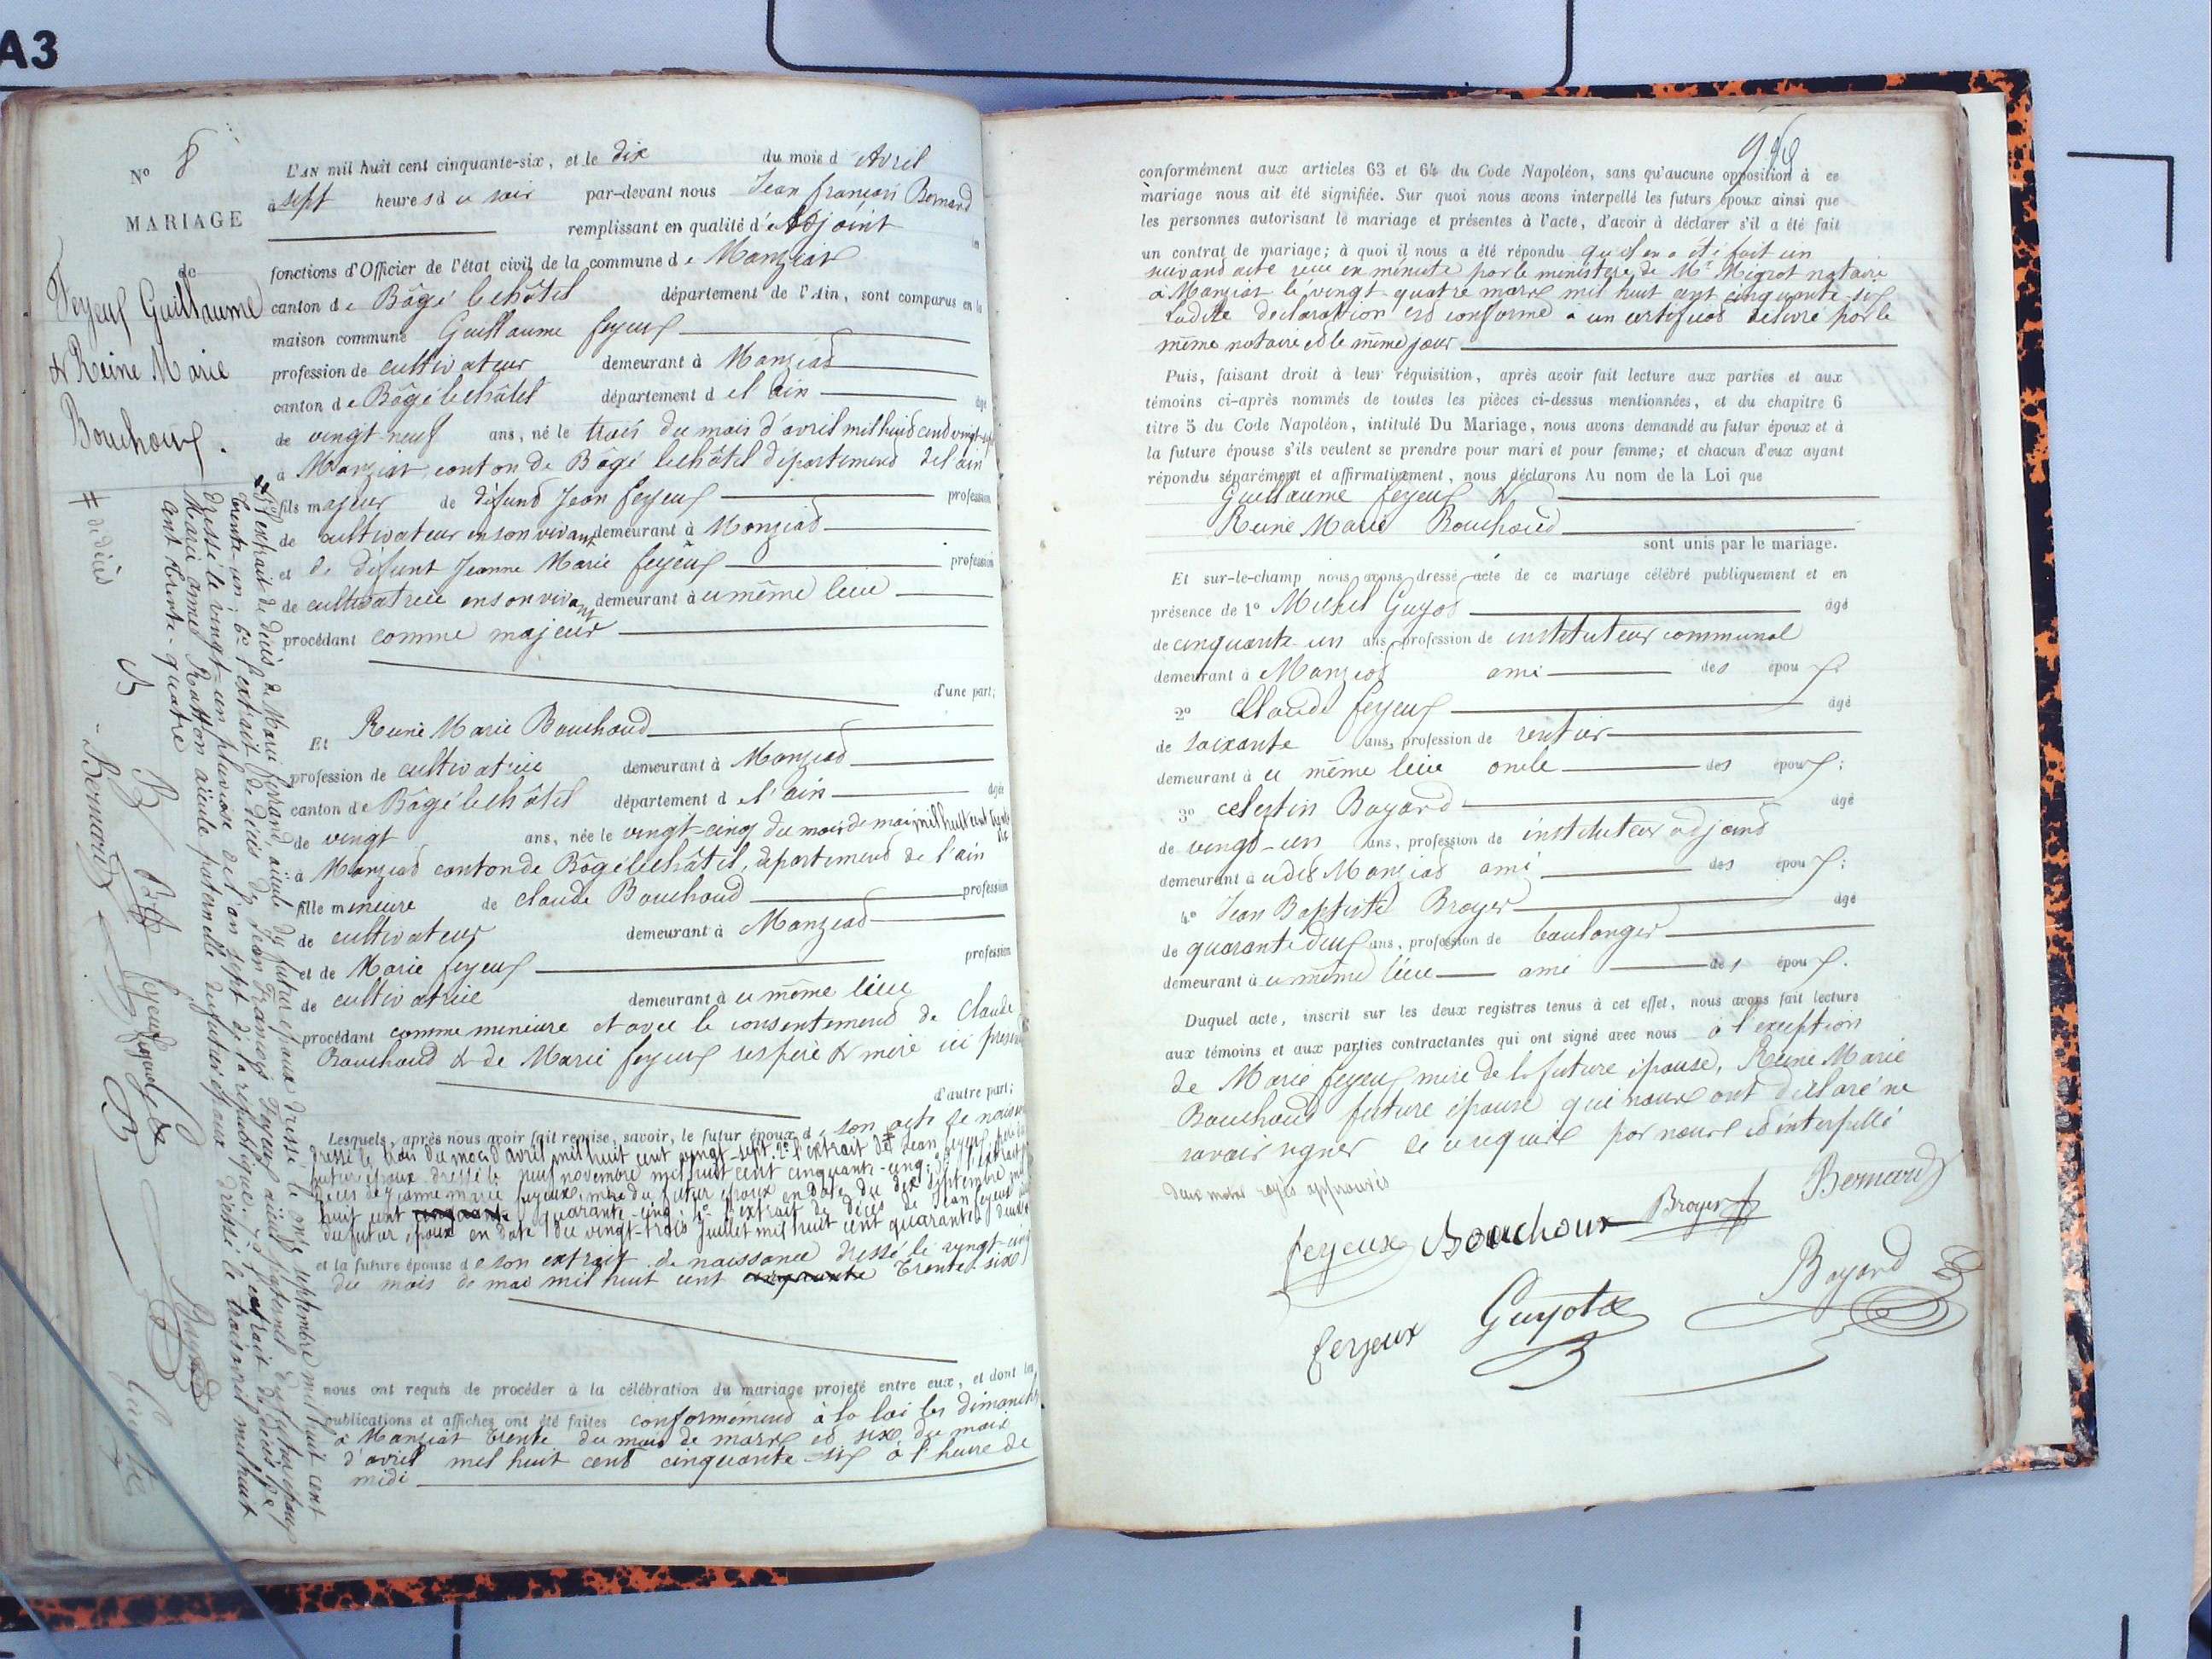 A3
N° 8
MARIAGE
de
Feyeux Guillaume
& Reine Marie
Bouchoux.
L'AN mil huit cent cinquante-six, et le dix du mois d Avril
à sept heures d u soir par-devant nous Jean françois Bernard
remplissant en qualité d'Adjoint
fonctions d'Officier de l'état civil de la commune d e Manziat
canton d e Bâgé le châtel département de l'Ain, sont comparus en la
maison commune Guillaume feyeux
profession de cultivateur demeurant à Manziat
canton d e Bâgé le châtel département d el ain âgé
de vingt-neuf ans, né le trois du mois d'avril mil huit cent vingt-sept
à Manziat, canton de Bâgé le châtel département del ain
fils majeur de défunt Jean feyeux profession
de cultivateur en son vivant demeurant à Manziat
et de défunt Jeanne Marie feyeux profession
de cultivatrice en son vivant demeurant à ce même lieu
procédant comme majeur
d'une part;
Et Reine Marie Bouchoud
profession de cultivatrice demeurant à Manziat
canton de Bâgé le châtel département d el'ain âgée
de vingt ans, née le vingt-cinq du mois de mai mil huit cent trente six
à Manziat canton de Bâgé le châtel, département de l'ain
fille mineure de claude Bouchoud profession
de cultivateur demeurant à Manziat
et de Marie feyeux profession
de cultivatrice demeurant à ce même lieu
procédant comme mineure et avec le consentement de Claude
Bouchoud & de Marie feyeux ses père & mère ici présents
d'autre part;
Lesquels, après nous avoir fait remise, savoir, le futur époux d e son acte de naissance
dressé le trois du mois d'avril mil huit cent vingt-sept. 2° l'extrait de # Jean feyeux père du
futur époux dressé le neuf novembre mil huit cent cinquante-cinq; 3° l'extrait de
décès de Jeanne marie feyeux, mère du futur époux en date du dix septembre mil
huit cent cinquante quarante-cinq; 4° l'extrait de décès de Jean feyeux
du futur époux en date du vingt-trois Juillet mil huit cent quarante
et la future épouse d e son extrait de naissance dressé le vingt-cinq
du mois de mai mil huit cent cinquante trente six
nous ont requis de procéder à la célébration du mariage projeté entre eux, et dont les
publications et affiches ont été faites conformément à la loi les dimanches
à Manziat trente du mois de mars et six du mois
d'avril mil huit cent cinquante six à l'heure de
midi
5° l'extrait de décès de Marie ferrand, aïeule du futur époux dressé le onze septembre mil huit cent
trente-un; 6° l'extrait de décès de Jean François Feyeux aïeul paternel du futur époux
dressé le vingt-un pluviose de l'an sept de la république; 7° l'extrait de décès de
Marie Anne Ratton aïeule paternelle du futur époux dressé le trois avril mil huit
cent trente-quatre
# de décès
Bernard
feyeux
Bayard
Guyot
conformément aux articles 63 et 64 du Code Napoléon, sans qu'aucune opposition à ce
mariage nous ait été signifiée. Sur quoi nous avons interpellé les futurs époux ainsi que
les personnes autorisant le mariage et présentes à l'acte, d'avoir à déclarer s'il a été fait
un contrat de mariage; à quoi il nous a été répondu qu'il en a été fait un
suivant acte reçu en minute par le ministère de Me Migrot notaire
à Manziat le vingt quatre mars mil huit cent cinquante-six
ladite déclaration est conforme à un certificat délivré par le
même notaire et le même jour
Puis, faisant droit à leur réquisition, après avoir fait lecture aux parties et aux
témoins ci-après nommés de toutes les pièces ci-dessus mentionnées, et du chapitre 6
titre 5 du Code Napoléon, intitulé Du Mariage, nous avons demandé au futur époux et à
la future épouse s'ils veulent se prendre pour mari et pour femme; et chacun d'eux ayant
répondu séparément et affirmativement, nous déclarons Au nom de la Loi que
Guillaume feyeux &
Reine Marie Bouchoud
sont unis par le mariage.
Et sur-le-champ nous avons dressé acte de ce mariage célébré publiquement et en
présence de 1° Michel Guyot âgé
de cinquante un ans profession de instituteur communal
demeurant à Manziat ami des époux.
2° Claude feyeux âgé
de soixante ans, profession de rentier
demeurant à ce même lieu oncle des époux;
3° celestin Bayard âgé
de vingt-un ans, profession de instituteur adjoint
demeurant à udit Manziat ami des époux;
4° Jean Baptiste Broyer âgé
de quarante deux ans, profession de boulanger
demeurant à ce même lieu ami des époux.
Duquel acte, inscrit sur les deux registres tenus à cet effet, nous avons fait lecture
aux témoins et aux parties contractantes qui ont signé avec nous à l'exception
de Marie feyeux mère de la future épouse, Reine Marie
Bouchoud future épouse qui nous ont déclaré ne
savoir signer de ce requis par nous et interpellé
deux mots rayés approuvés
feyeux Bouchoux Broyer Bernard
feyeux Guyot Bayard